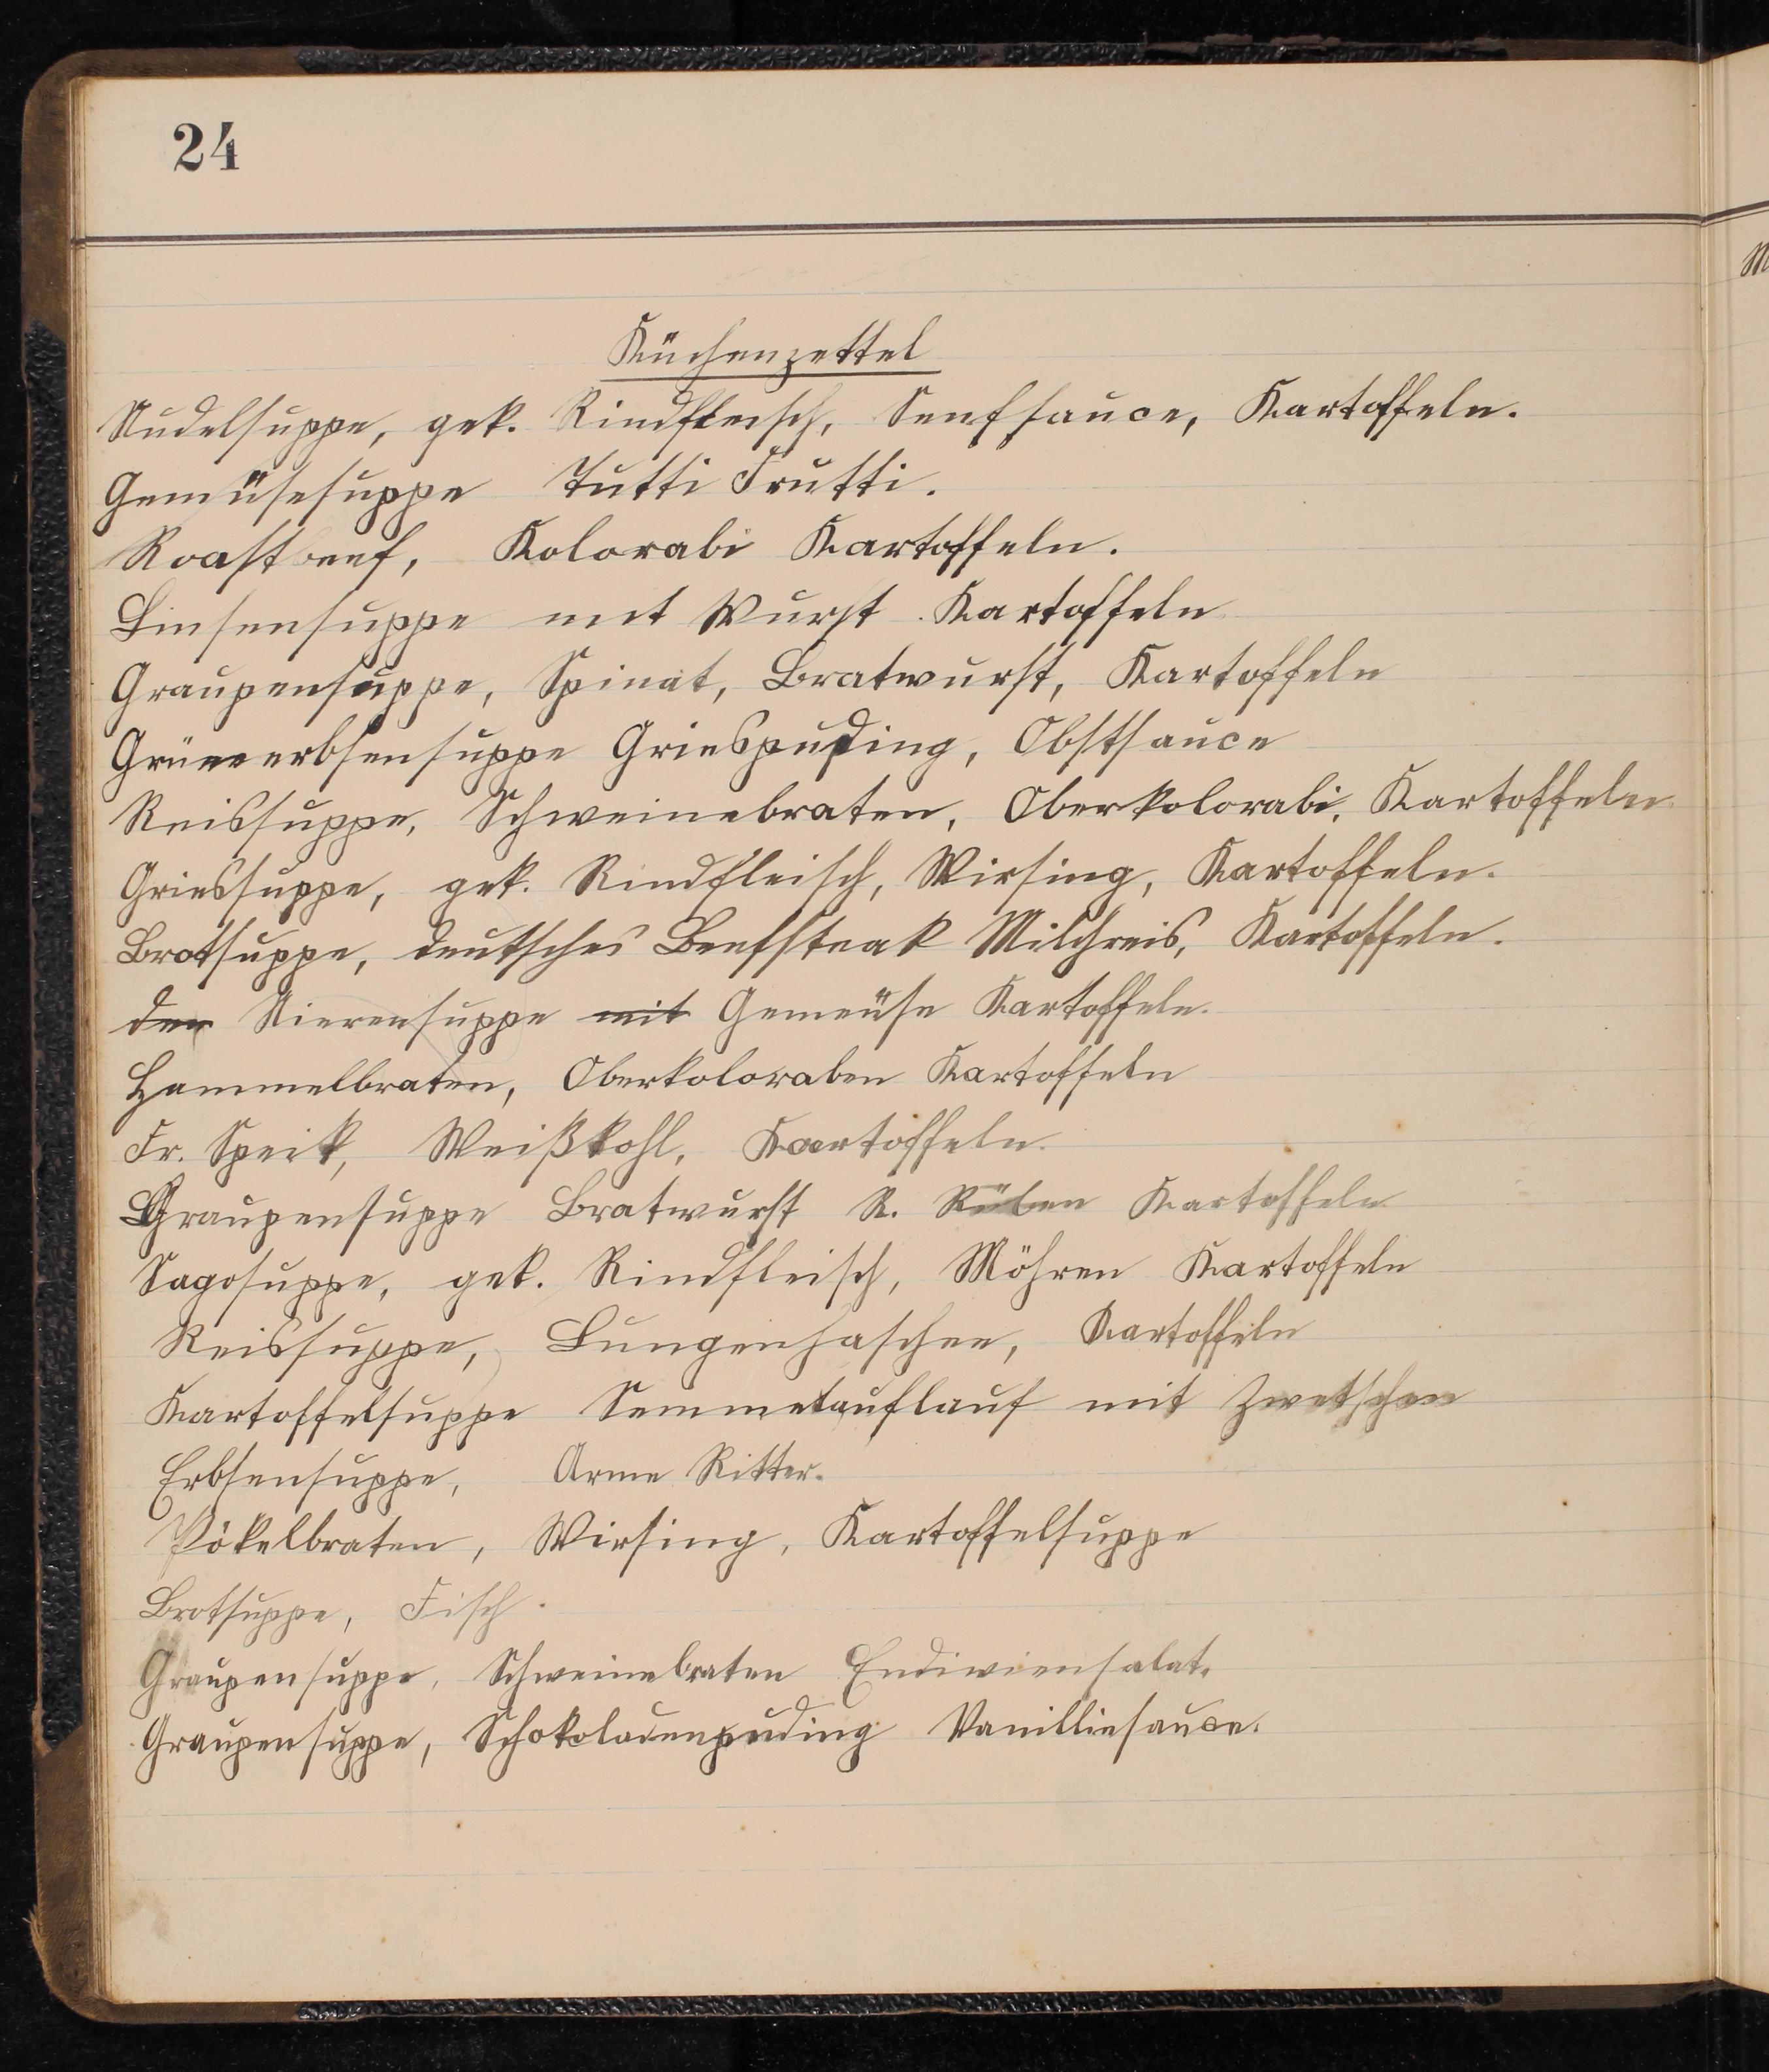 24
Küchenzettel
Nudelsuppe, gek. Rindfleisch, Senfsauce, Kartoffeln.
Gemüsesuppe Tutti Frutti.
Roastbeef, Kolorabi Kartoffeln.
Linsensuppe mit Wurst Kartoffeln
Graupensuppe, Spinat, Bratwurst, Kartoffeln
Grüneerbsensuppe Griespuding, Obstsauce
Reissuppe, Schweinebraten, Oberkolorabi, Kartoffeln
Griessuppe, gek. Rindfleisch, Wirsing, Kartoffeln.
Brotsuppe, deutsches Beefsteak Milchreis, Kartoffeln.
der Nierensuppe mit Gemeüse Kartoffeln.
Hammelbraten, Oberkoloraben Kartoffeln
Fr. Speik, Weißkohl, Kartoffeln.
Graupensuppe Bratwurst R. Rüben Kartoffeln
Sagosuppe, gek. Rindfleisch, Möhren Kartoffeln
Reissuppe, Lungenhaschee, Kartoffeln
Kartoffelsuppe Semmelauflauf mit Zwetschen
Erbsensuppe, Arme Ritter.
Pökelbraten, Wirsing, Kartoffelsuppe
Brotsuppe, Fisch.
Graupensuppe, Schweinebraten Endiviensalat.
Graupensuppe, Schokoladenpuding Vanilliesause.